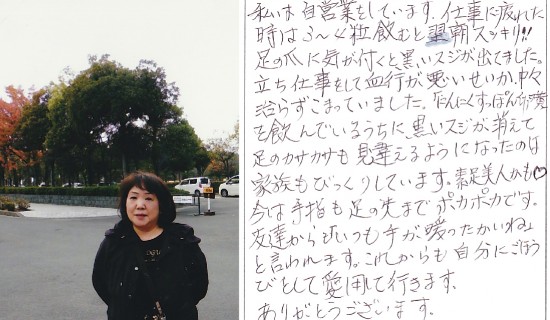 私は自営業をしています。仕事に疲れた
時は3〜4粒飲むと翌朝スッキリ!!
足の爪に気が付くと黒いスジが出てました。
立ち仕事をして血行が悪いせいか、中々
治らずこまっていました。にんにくすっぽん卵黄
を飲んでいるうちに、黒いスジが消えて
足のカサカサも見違えるようになったのは
家族もびっくりしています。素足美人かも♡
今は手指も足の先までポカポカです。
友達から「いつも手が暖ったかいね」
と言われます。これからも自分にごほう
びとして愛用して行きます。
ありがとうございます。